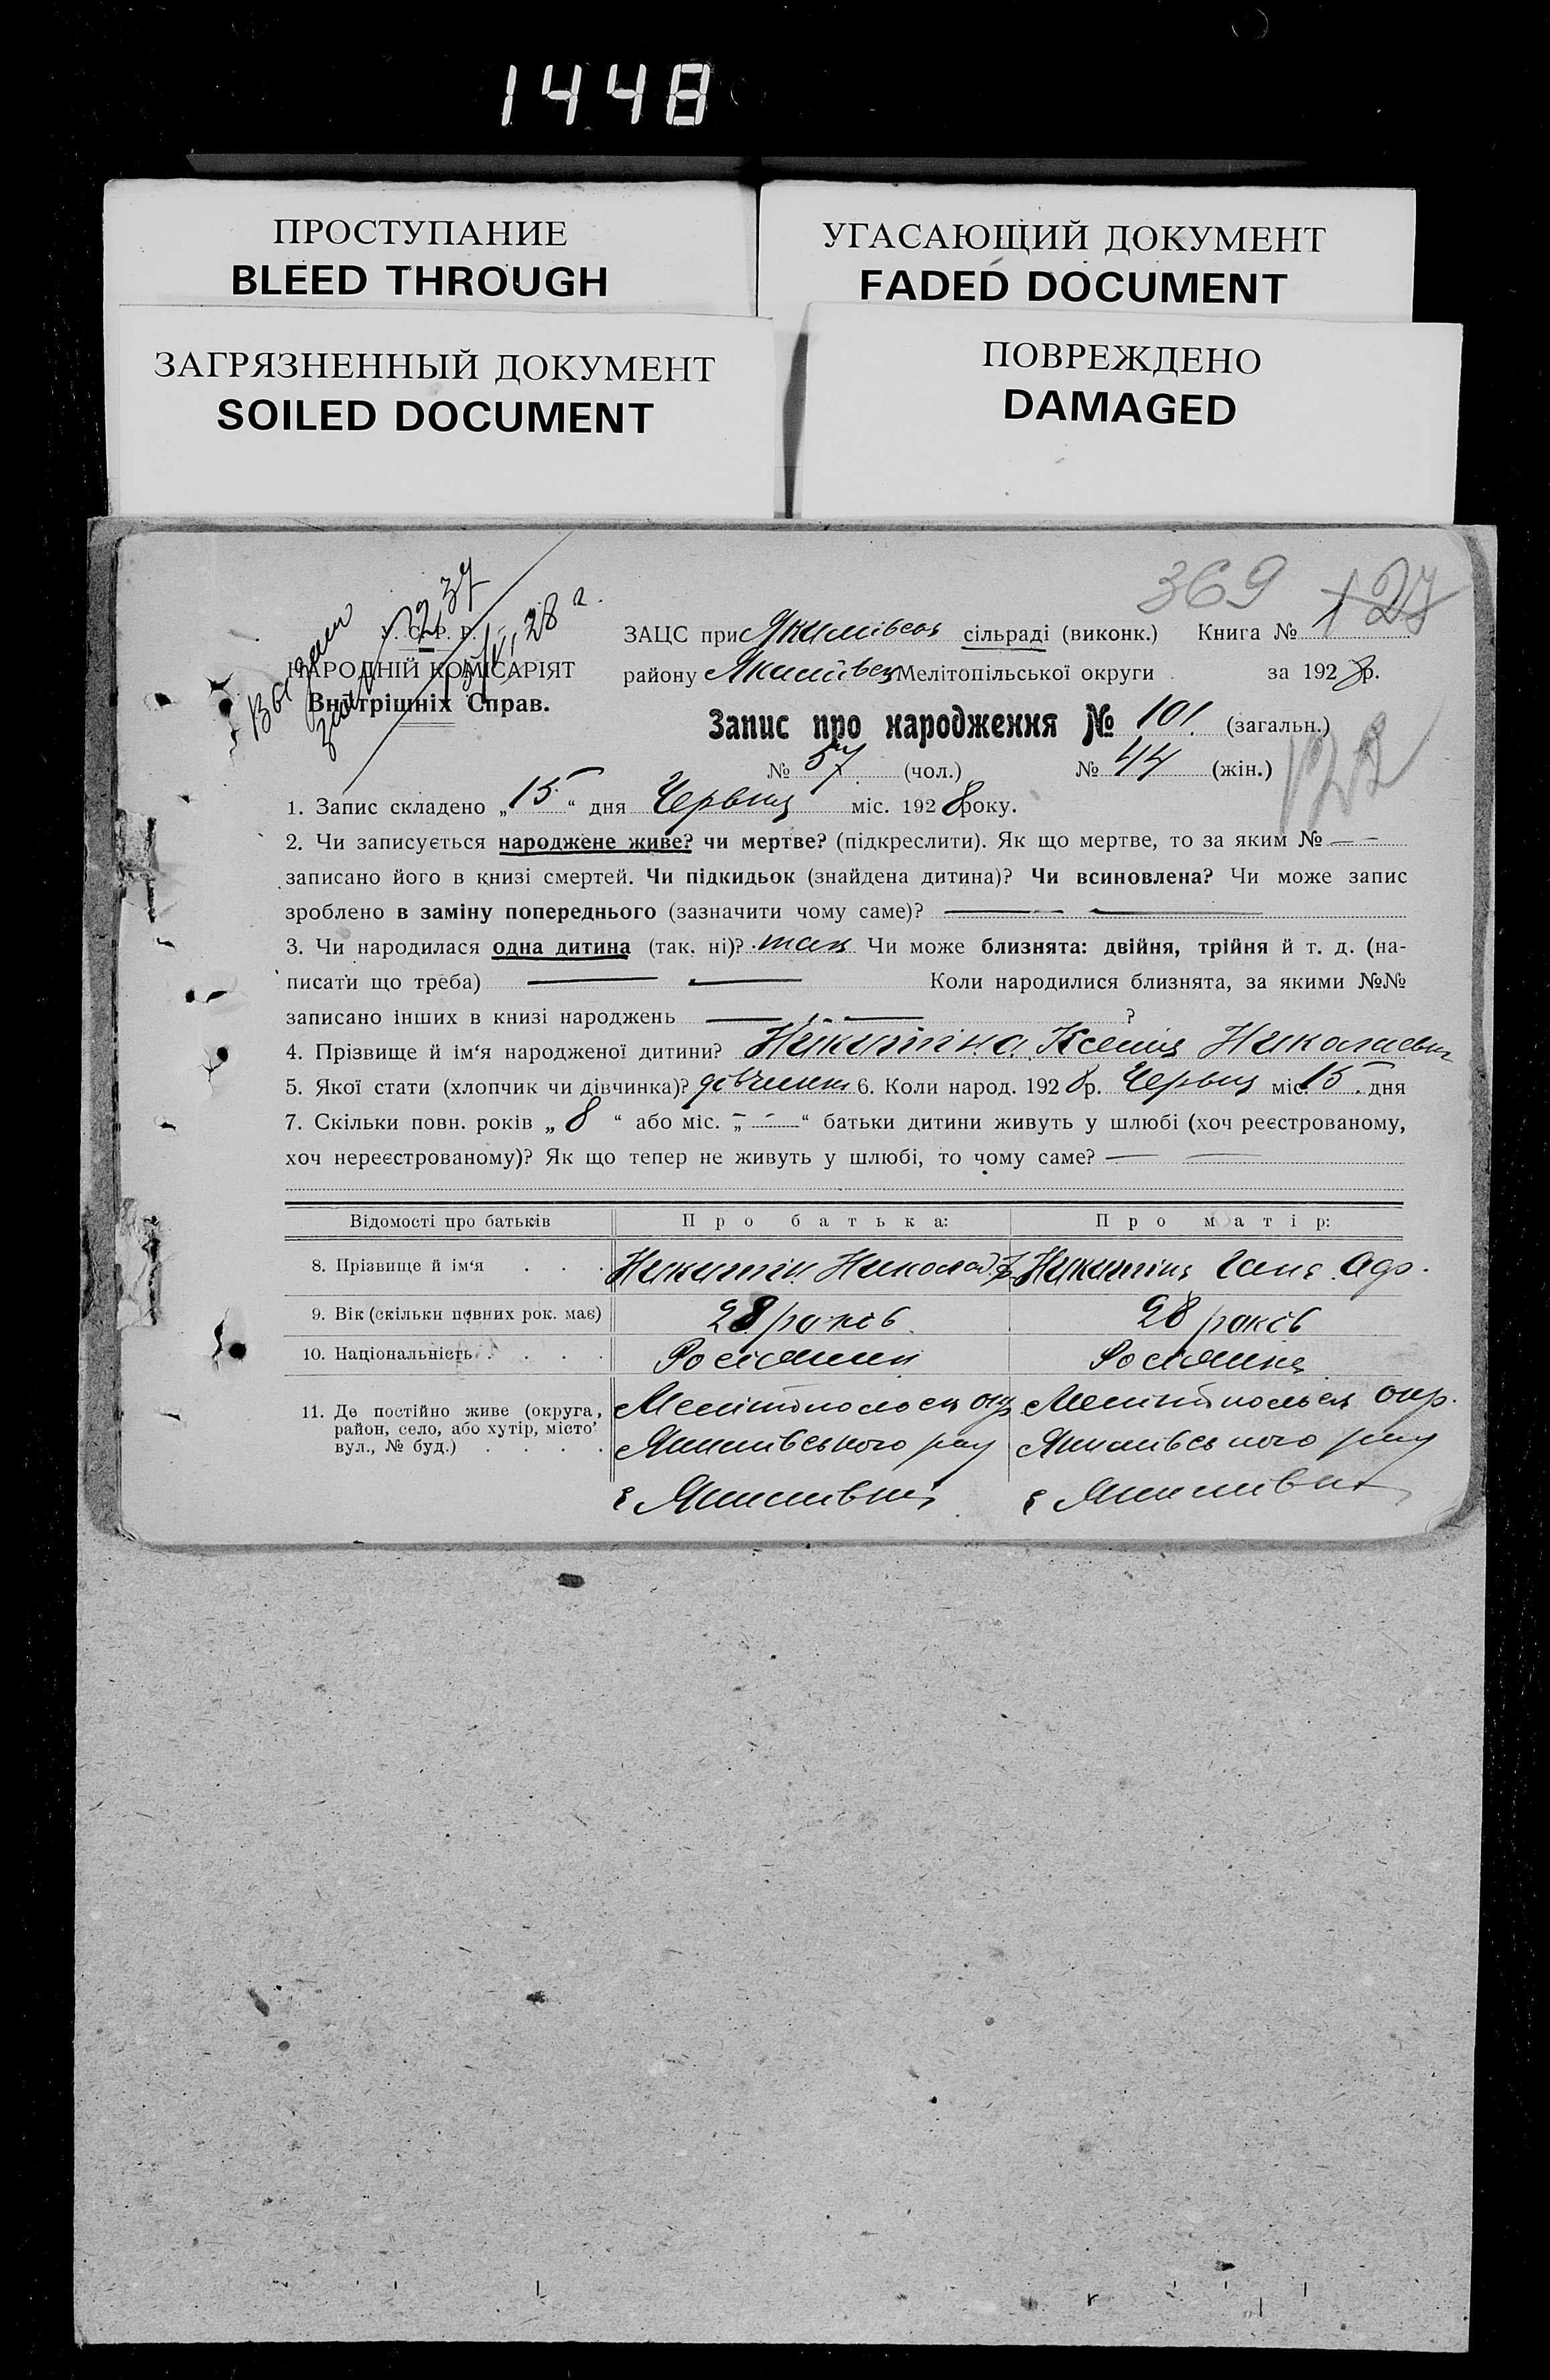 1448
ПРОСТУПАНИЕ
BLEED THROUGH
УГАСАЮЩИЙ ДОКУМЕНТ
FADED DOCUMENT
ЗАГРЯЗНЕННЫЙ ДОКУМЕНТ
SOILED DOCUMENT
ПОВРЕЖДЕНО
DAMAGED
369 127
У. С. Р. Р.
НАРОДНІЙ КОМІСАРІЯТ
Внутрішніх Справ.
237
28 г.
ЗАЦС при Якимівськ сільраді (виконк.) Книга № 1
району Якимівськ Мелітопільської округи за 1928 р.
Запис про народження № 101 (загальн.)
№ 57 (чол.) № 44 (жін.)
122
1. Запис складено „15“ дня Червня міс. 1928 року.
2. Чи записується народжене живе? чи мертве? (підкреслити). Як що мертве, то за яким № —
записано його в книзі смертей. Чи підкидьок (знайдена дитина)? Чи всиновлена? Чи може запис
зроблено в заміну попереднього (зазначити чому саме)? — —
3. Чи народилася одна дитина (так. ні)? так Чи може близнята: двійня, трійня й т. д. (на-
писати що треба) — — Коли народилися близнята, за якими №№
записано інших в книзі народжень — — ?
4. Прізвище й ім‘я народженої дитини? Никитіна Ксенія Николаевн
5. Якої стати (хлопчик чи дівчинка)? дівчинка 6. Коли народ. 1928 р. Червня міс. 15 дня
7. Скільки повн. років „8“ або міс. „—“ батьки дитини живуть у шлюбі (хоч реєстрованому,
хоч нереєстрованому)? Як що тепер не живуть у шлюбі, то чому саме? — —
Відомості про батьків Про батька: Про матір:
8. Прізвище й ім‘я . . . Никитін Никола Никитіна Ганна
9. Вік (скільки повних рок. має) 28 років 28 років
10. Національність . . . . Росіянин Росіянка
11. Де постійно живе (округа, район, село, або хутір, місто’ вул., № буд.) . . . .
Мелітопольск окр Мелітопольск окр.
Якимівського рай Якимівського рай
с Якимівка с Якимівка